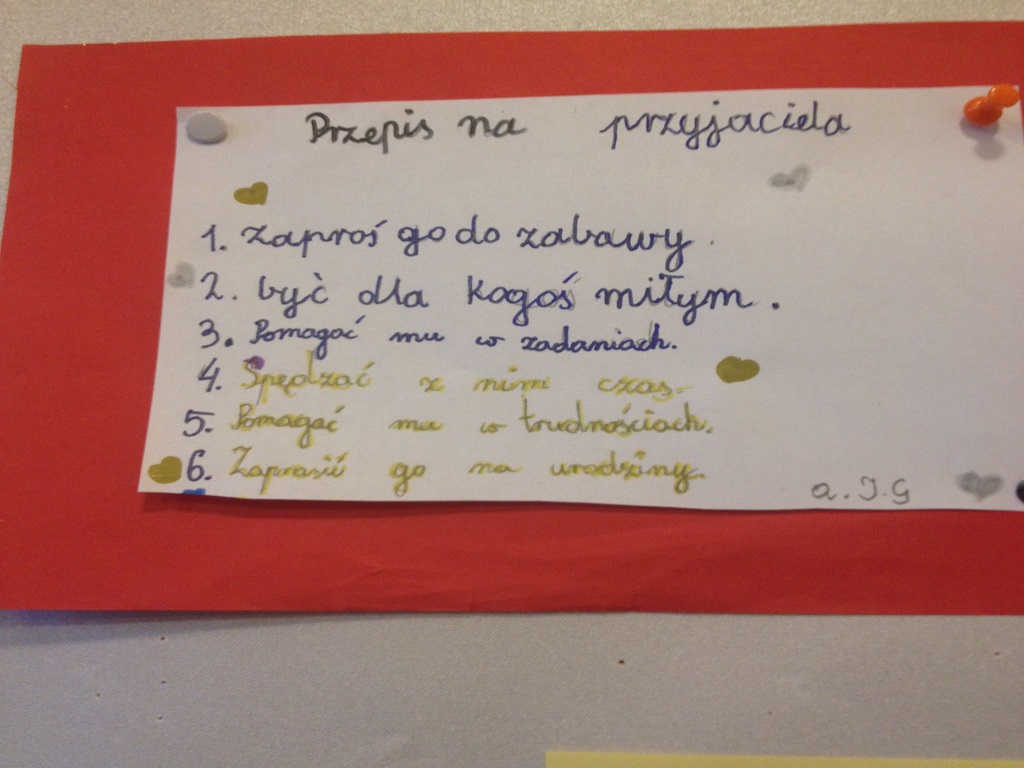 Przepis na przyjaciela
1. zaproś go do zabawy.
2. być dla kogoś miłym.
3. Pomagać mu w zadaniach.
4. Spędzać z nim czas.
5. Pomagać mu w trudnościach.
6. Zaprosić go na urodziny.
a. I.G